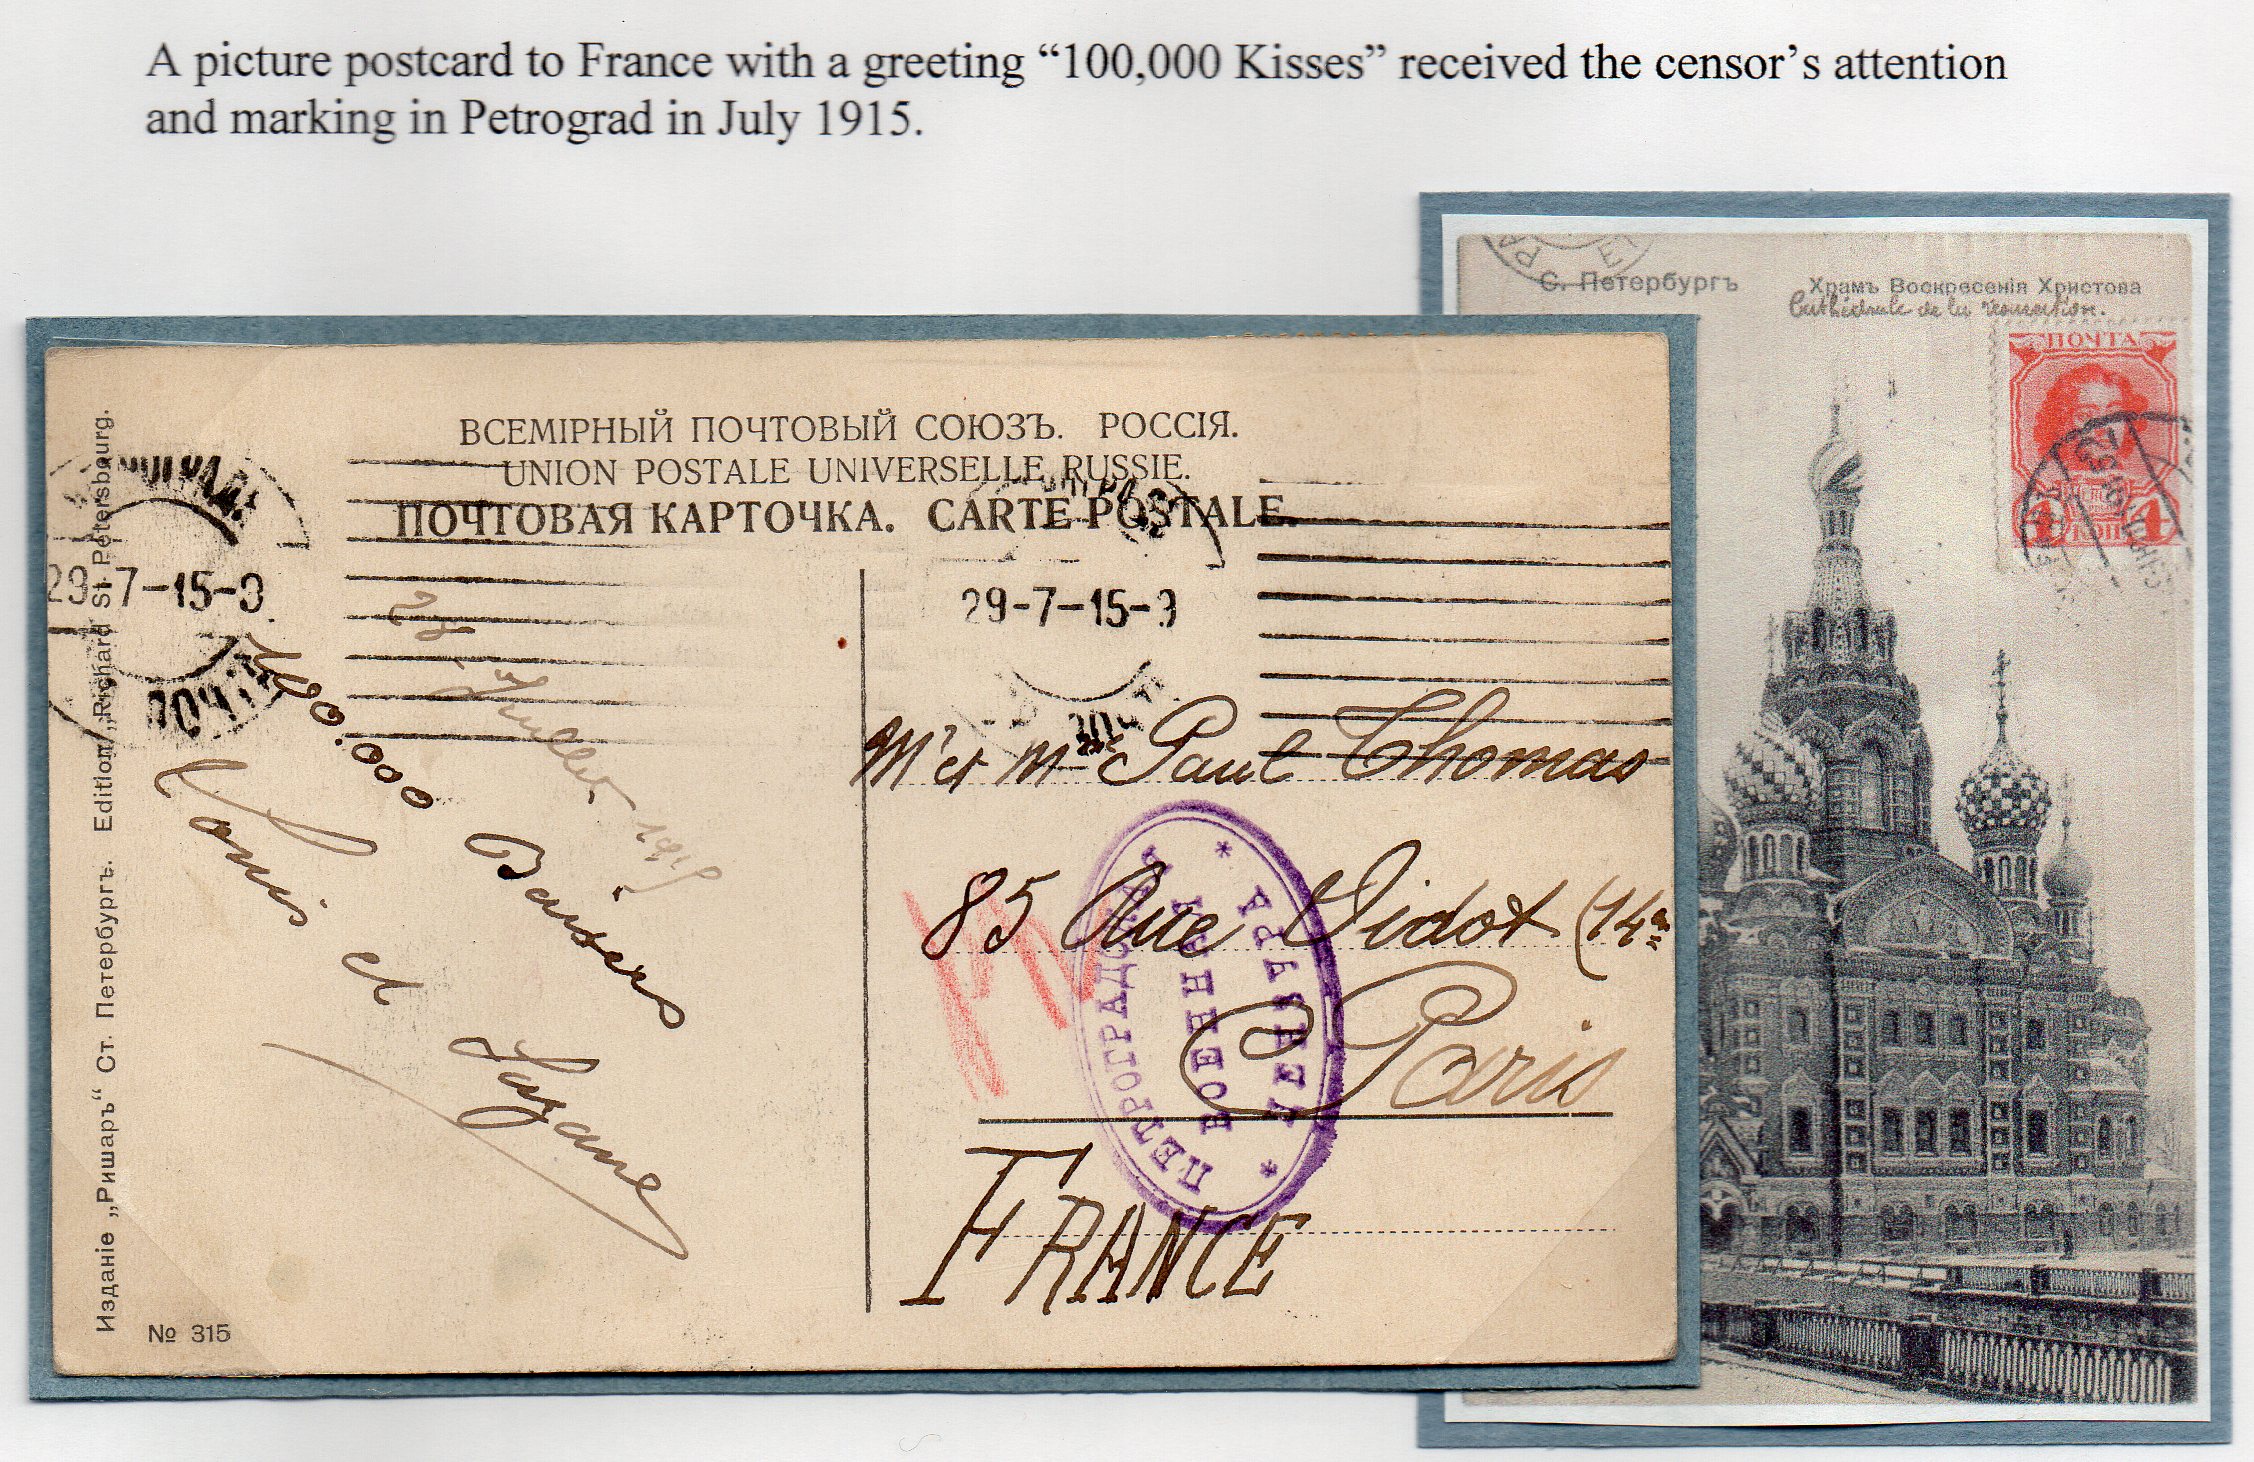 A picture postcard to France with a greeting “100,000 Kisses” received the censor’s attention
and marking in Petrograd in July 1915.
С. Петербургъ
Храмъ Воскресенія Христова
Cathédrale de la
ПОЧТА
4 КОП 4
ВСЕМІРНЫЙ ПОЧТОВЫЙ СОЮЗЪ. РОССІЯ.
UNION POSTALE UNIVERSELLE RUSSIE.
ПОЧТОВАЯ КАРТОЧКА. CARTE POSTALE.
29-7-15-9
29-7-15-9
Juillet 1915
100.000 Baisers
Louis et Suzanne
Mr et Mme Paul Thomas
85 Rue Didot (14e
Paris
FRANCE
ПЕТРОГРАДСКАЯ
ВОЕННАЯ
ЦЕНЗУРА
Изданіе „Ришаръ“ Ст. Петербургъ. Edition „Richard St. Petersbourg.
№ 315